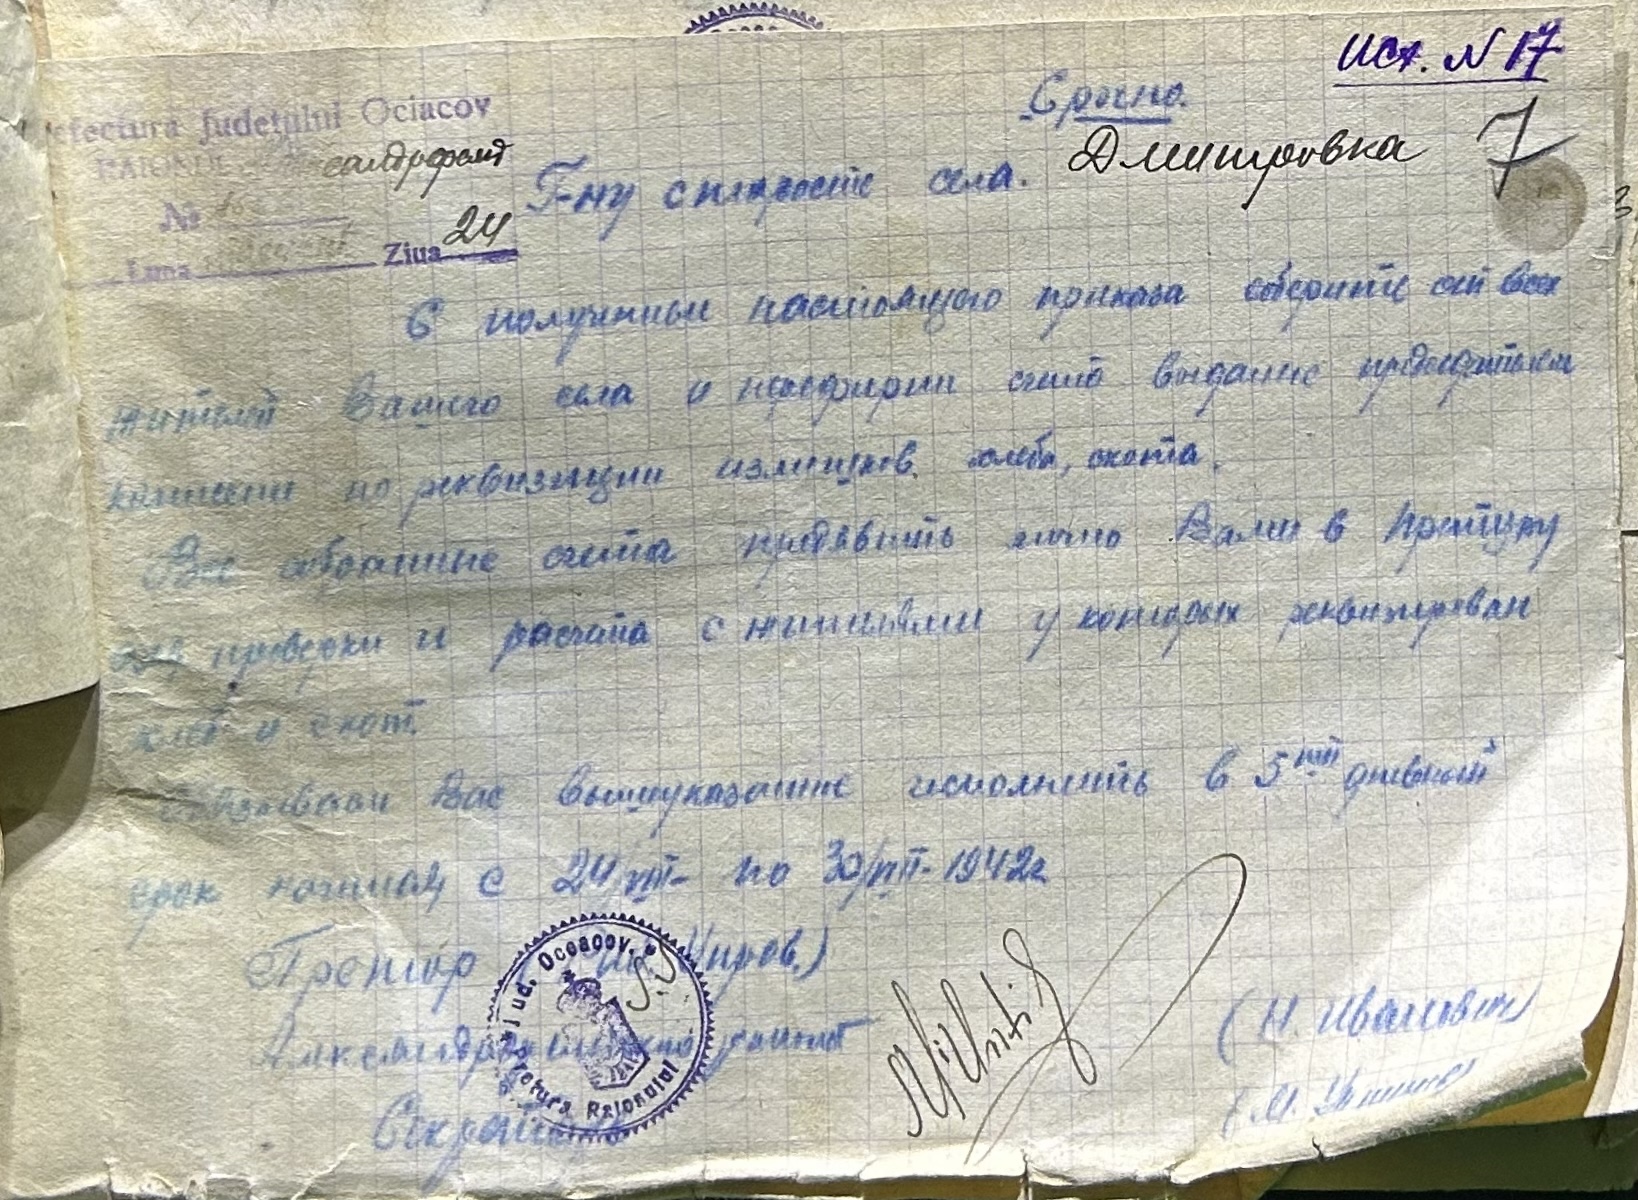 Исх. N 17
Срочно.
7
efectura Judeţului Ociacov
RAIONUL Александрфельд
№
Luna August Ziua 24
Г-ну старосте села. Дмитровка
С получением настоящего приказа соберите от всех
жителей Вашего села и счета выданые председателем
комиссии по реквизиции излишков хлеба, скота.
Все собранные счета предявить лично Вами в Претуру
для проверки и расчата с жителями у которых реквизирован
хлеб и скот.
Обязываем Вас вышеуказанное исполнить в 5ти дневный
срок начиная с 24/VIII- по 30/VIII-1942г
Претор
район
Секретарь
Jud. Oceacov.
Pretura Raionului
(Н. Иванович)
(М.